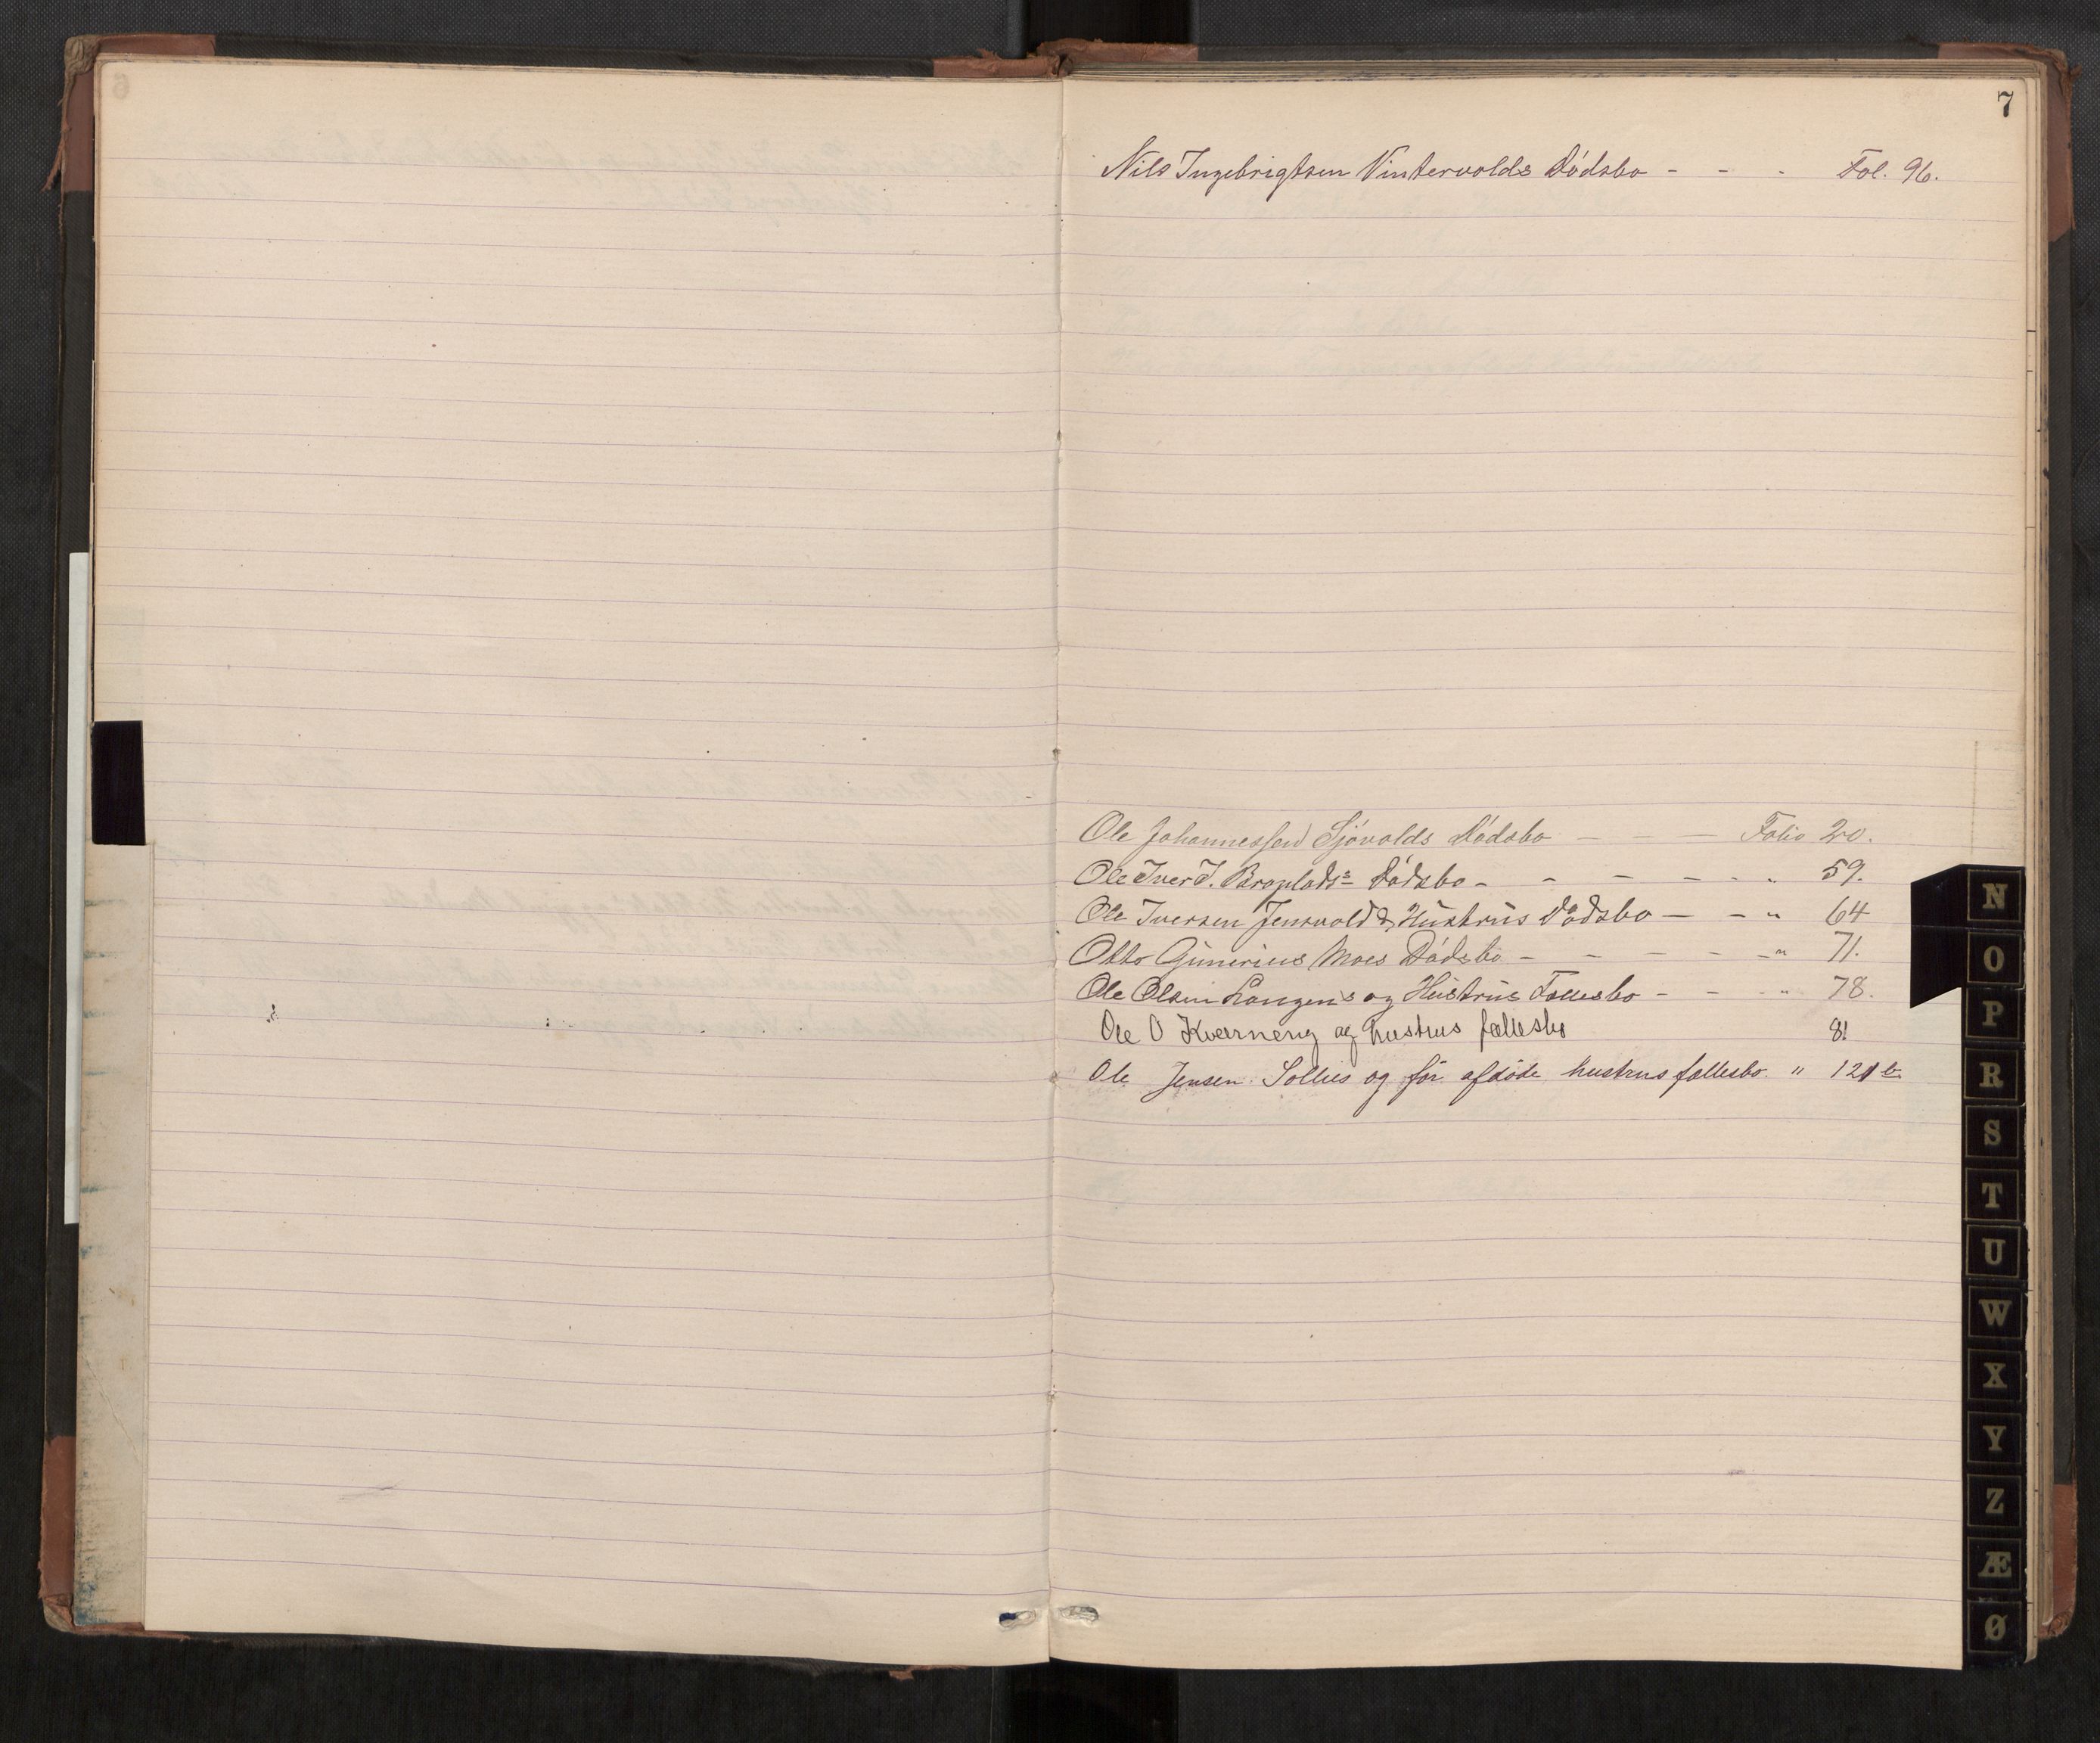 7
Nils Ingebrigtsen Vintervolds Dødsbo - - - Fol. 96.
Ole Johannessen Sjøvolds Dødsbo — — — Folio 20.
Ole Iver J. Dødsbo - - - - - " 59.
Ole Iversen Jensvold & Hustrus Dødsbo — - " 64
Otto Gunerius Moes Dødsbo - - - - - - " 71.
Ole Olsen Langens og Hustrus Fællesbo - - - " 78.
Ole O Kværneng og hustrus fællesbo 81
Ole Jensen Sollies og før afdøde hustrus fællesbo. " 121 b
N
O
P
R
S
T
U
W
X
Y
Z
Æ
Ø